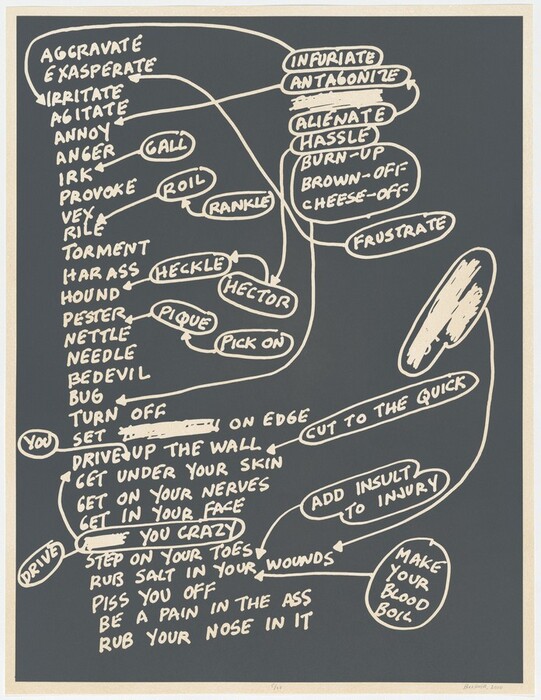 AGGRAVATE
EXASPERATE
IRRITATE
AGITATE
ANNOY
ANGER
IRK
PROVOKE
VEX
RILE
TORMENT
HARASS
HOUND
PESTER
NETTLE
NEEDLE
BEDEVIL
BUG
TURN OFF
SET ON EDGE
DRIVE UP THE WALL
GET UNDER YOUR SKIN
GET ON YOUR NERVES
GET IN YOUR FACE
YOU CRAZY
STEP ON YOUR TOES
RUB SALT IN YOUR WOUNDS
PISS YOU OFF
BE A PAIN IN THE ASS
RUB YOUR NOSE IN IT
YOU
DRIVE
INFURIATE
ANTAGONIZE
ALIENATE
HASSLE
BURN-UP
BROWN-OFF
CHEESE-OFF
GALL
ROIL
RANKLE
FRUSTRATE
HECKLE
HECTOR
PIQUE
PICK ON
CUT TO THE QUICK
ADD INSULT
TO INJURY
MAKE
YOUR
BLOOD
BOIL